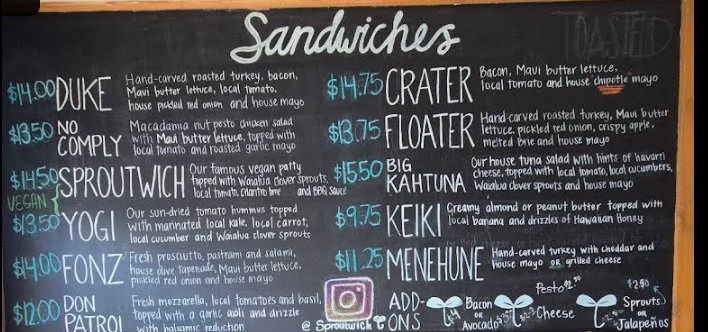 Sandwiches
TOASTED
$14.00 DUKE
Hand-carved roasted turkey, bacon,
Maui butter lettuce, local tomato,
house pickled red onion and house mayo
$13.50 NO
COMPLY
Macadamia nut pesto chicken salad
with Maui butter lettuce, topped with
local tomato and roasted garlic mayo
$14.50 SPROUTWICH
VEGAN
Our famous vegan patty
topped with Waialua clover sprouts,
local tomato, cilantro lime and BBQ sauce
$13.50 YOGI
Our sun-dried tomato hummus topped
with marinated local kale, local carrot,
local cucumber and Waialua clover sprouts
$14.00 FONZ
Fresh prosciutto, pastrami and salami,
house olive tapenade, Maui butter lettuce,
pickled red onion and house mayo
$12.00 DON
PATROL
Fresh mozzarella, local tomatoes and basil,
topped with a garlic aioli and drizzle
with balsamic reduction
$14.75 CRATER
Bacon, Maui butter lettuce,
local tomato and house chipotle mayo
$13.75 FLOATER
Hand-carved roasted turkey, Maui butter
lettuce, pickled red onion, crispy apple,
melted brie and house mayo
$15.50 BIG
KAHTUNA
Our house tuna salad with hints of havarti
cheese, topped with local tomato, local cucumbers,
Waialua clover sprouts and house mayo
$9.75 KEIKI
Creamy almond or peanut butter topped with
local banana and drizzles of Hawaiian Honey
$11.25 MENEHUNE
Hand-carved turkey with cheddar and
house mayo OR grilled cheese
@ Sproutwich
ADD-
ONS
Bacon
OR
Avocado
Pesto
Cheese
$2.50
Sprouts
OR
Jalapeños